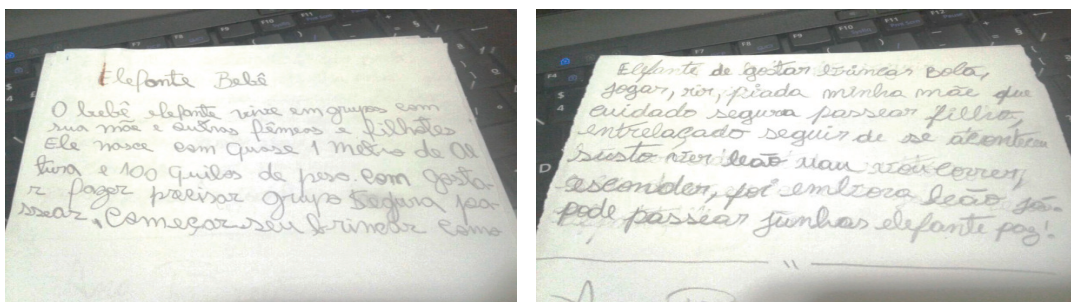 Elefante Bebê
O bebê elefante vive em grupos com
sua mãe e outras fêmeas e filhotes
Ele nasce com quase 1 metro de al
tura e 100 quilos de peso. com gosta-
r fazer precisar grupo segura pa-
ssear, começar seu brincar como
Elefante de gostar brincar bola,
jogar, rir, piada minha mãe que
cuidado segura passear filho,
entrelaçado seguir de se aconteceu
susto ver leão correr,
esconder, foi embora leão já
pode passear junhos elefante paz!